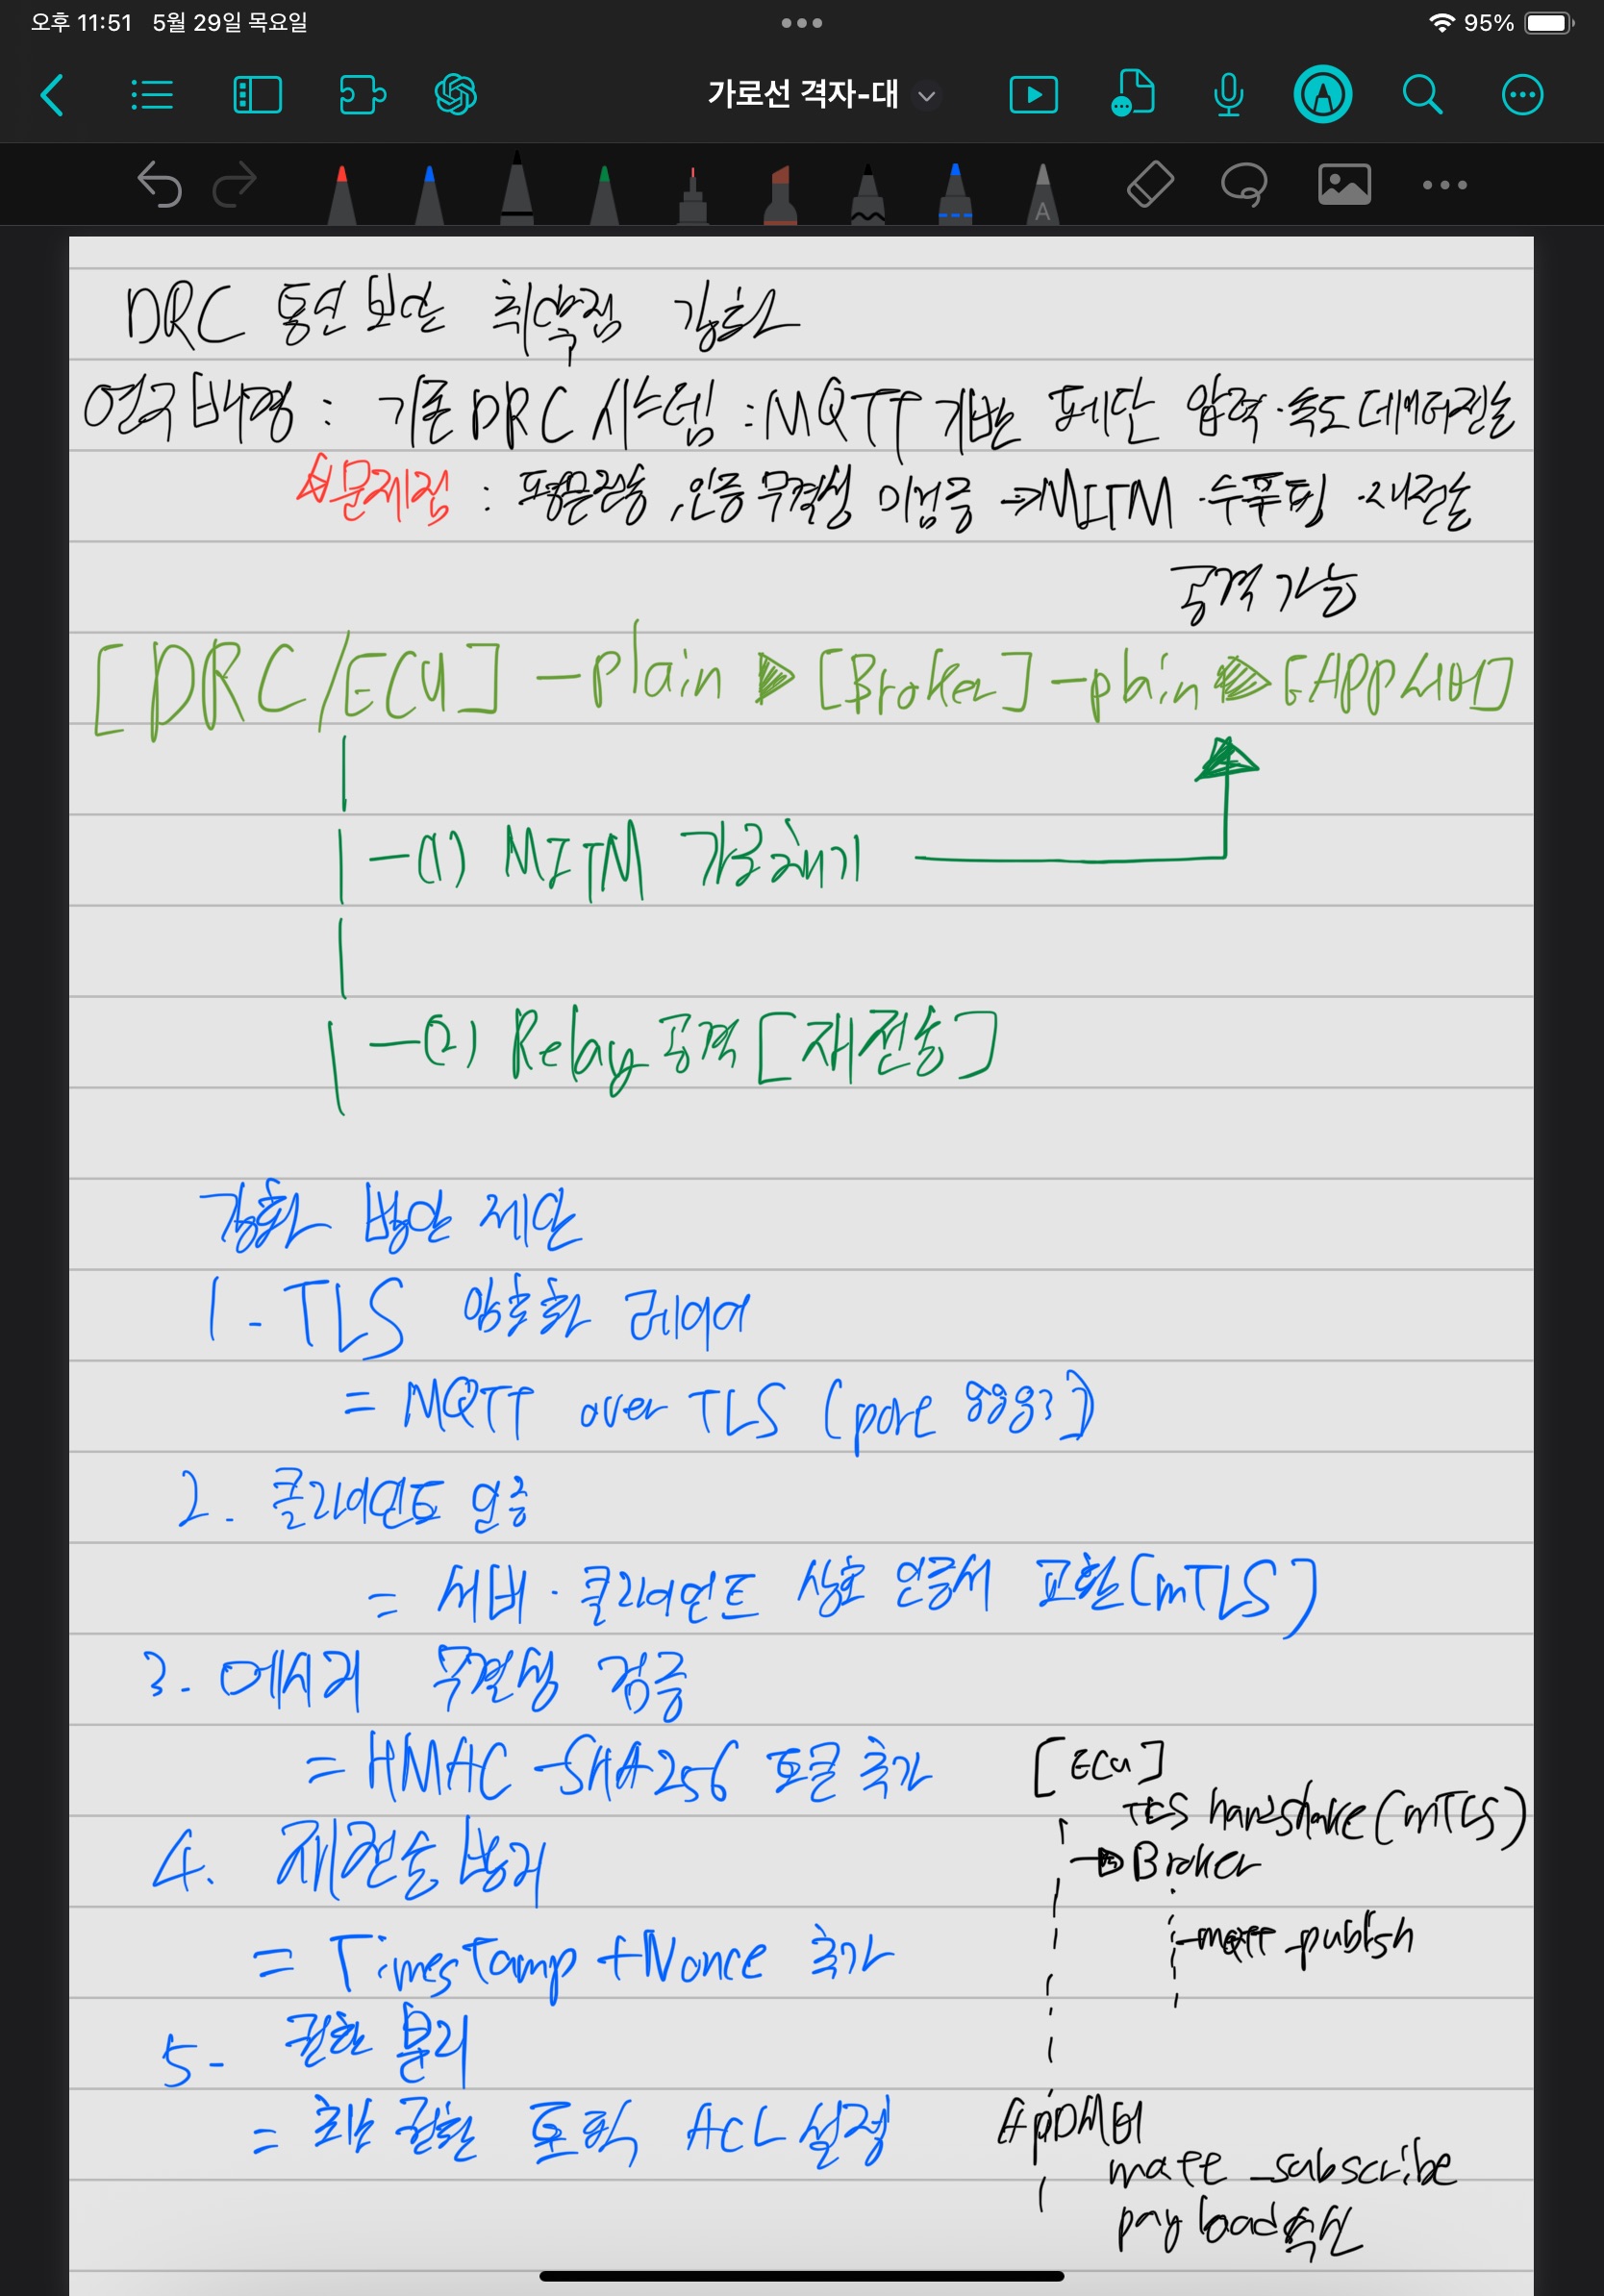 오후 11:51 5월 29일 목요일
95%
가로선 격자-대
A
DRC 통신 보안 취약점 강화
연구배경 : 기존 DRC 시스템 : MQTT 기반 페단 압력·속도 데이터전송
문제점 : 평문전송, 인증 무결성 미검증 ⇒ MITM ·수푸핑 ·재전송
공격 가능
[DRC/ECU] -plain ▶ [Broker] -plain ▶ [APP서버]
-(1) MITM 가로채기
-(2) Relay 공격 [재전송]
강화 방안 제안
1- TLS 암호화 레이어
= MQTT over TLS (port 8883)
2. 클라이언트 인증
= 서버·클라이언트 상호 인증서 교환(mTLS)
3. 메시지 무결성 검증
= HMAC-SHA256 토큰 추가
4. 재전송 방지
= Timestamp + Nonce 추가
5- 권한 분리
= 최소 권한 토픽 ACL 설정
[ECU]
TLS handshake(mTLS)
→ Broker
-mqtt_publish
App서버
mqtt_subscribe
payload 수신